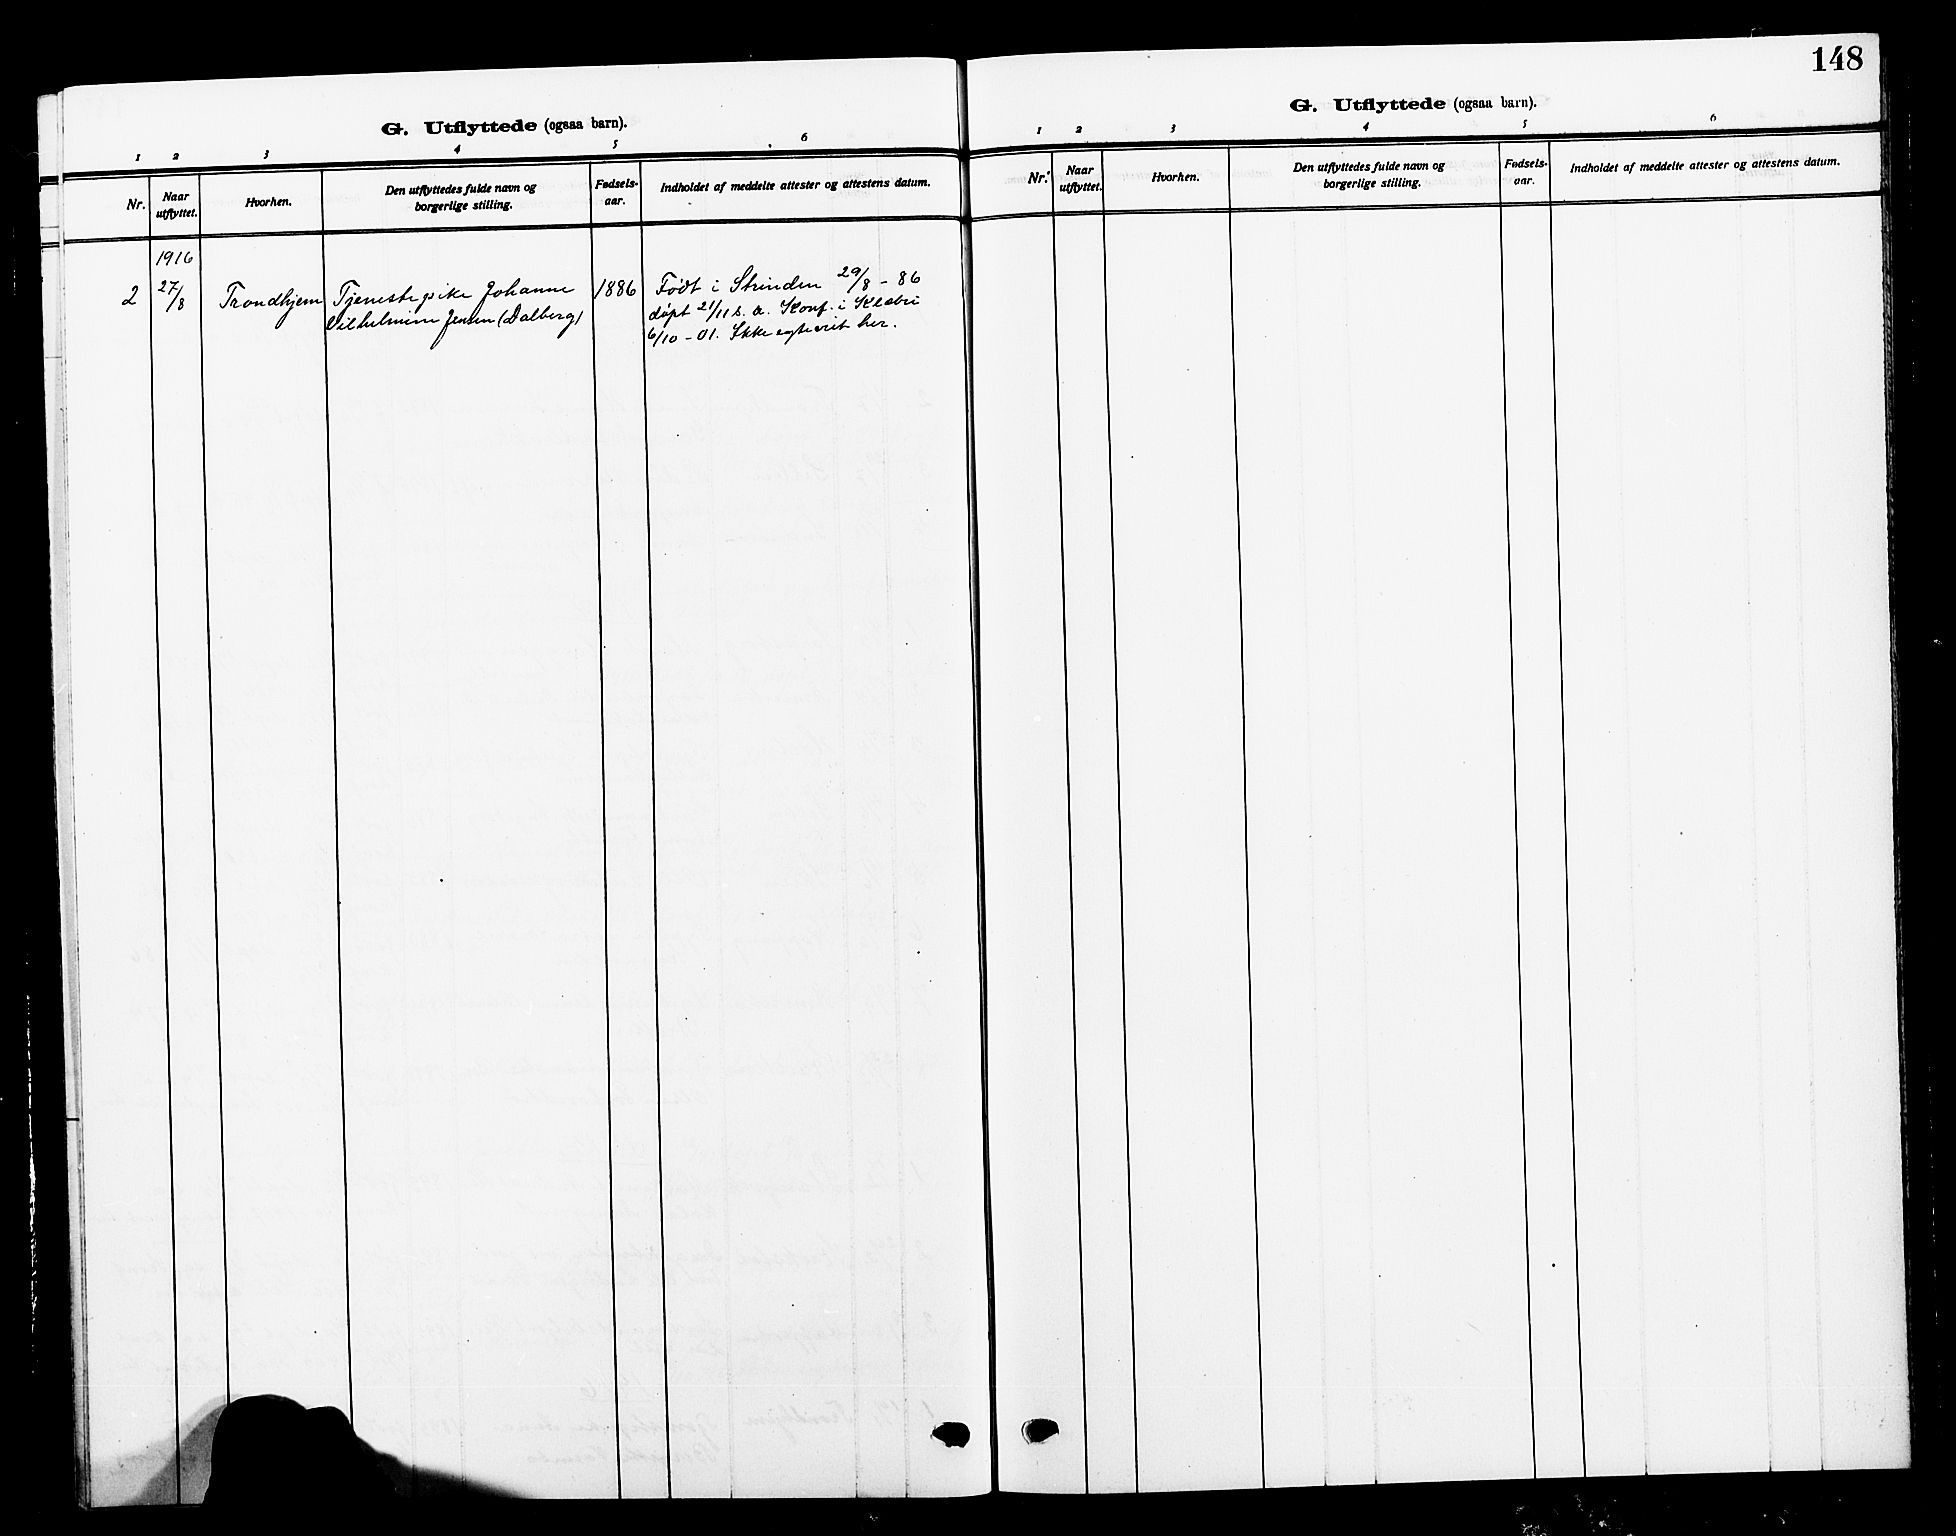 148
G. Utflyttede (ogsaa barn).
1 2 3 4 5 6
Nr. Naar utflyttet. Hvorhen. Den utflyttedes fulde navn og borgerlige stilling. Fødsels-aar. Indholdet af meddelte attester og attestens datum.
1916
2 27/8 Trondhjem Tjenestepike Johanne 1886 Født i Strinden 29/8 - 86
Vilhelmine Jensen (Dalberg) døpt 21/11 s. a. Konf. i Klæbu
6/10 - 01. Ikke egteviet her.
G. Utflyttede (ogsaa barn).
1 2 3 4 5 6
Nr. Naar utflyttet. Hvorhen. Den utflyttedes fulde navn og borgerlige stilling. Fødsels-aar. Indholdet af meddelte attester og attestens datum.